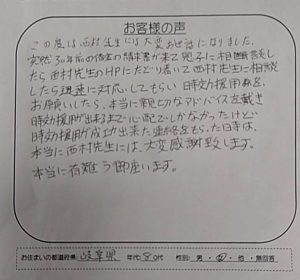 お客様の声
この度は西村先生には大変お世話になりました。
突然30年前の借金の請求書が来て息子に相談
したら西村先生のHPにたどり着いて西村先生に相談
したら迅速に対応してもらい日時効援用
お願いしたら、本当に親切なアドバイスを戴き
時効援用が出来るまで心配でしかなかったけど
時効援用が成功出来た連絡をもらった日は、
本当に西村先生には、大変感謝致します。
本当に有難う御座います。
お住まいの都道府県: 岐阜県 年代: 50代 性別: 男・女・他・無回答